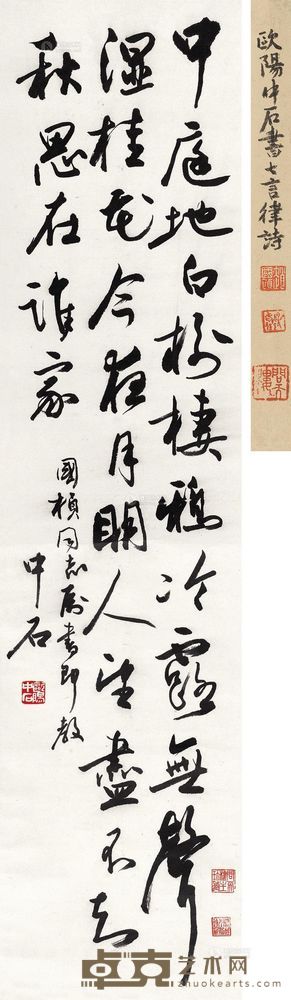 中庭地白樹棲鴉冷露無聲
濕桂花今夜月明人望盡不知
秋思在誰家
國楨同志屬書即教
中石
歐陽中石書七言律詩
卓克艺术网
www.zhuokearts.com